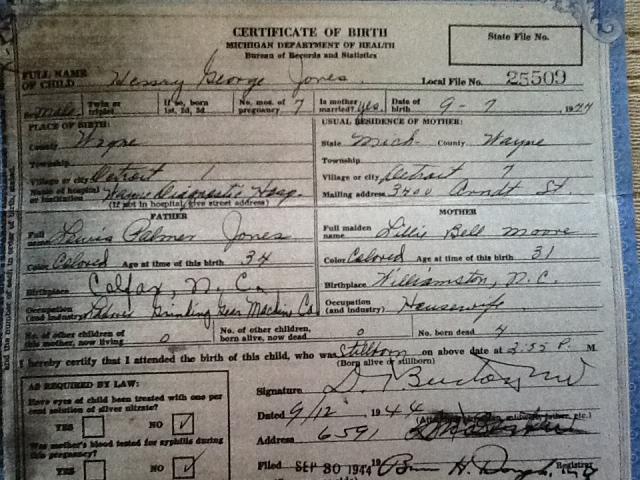 CERTIFICATE OF BIRTH
MICHIGAN DEPARTMENT OF HEALTH
Bureau of Records and Statistics
State File No.
FULL NAME OF CHILD Henry George Jones Local File No. 25509
Sex male Twin or triplet If so, born 1st, 2d, 3d No. mos. of pregnancy 7 Is mother married? yes Date of birth 9-7 1944
PLACE OF BIRTH: USUAL RESIDENCE OF MOTHER:
County Wayne State Mich. County Wayne
Township Township
Village or city Detroit 1 Village or city Detroit 7
Name of hospital or institution Wayne Diagnostic Hosp. Mailing address 3700 Arndt St.
(If not in hospital, give street address)
FATHER MOTHER
Full name Lewis Palmer Jones Full maiden name Lillie Bell Moore
Color Colored Age at time of this birth 34 Color Colored Age at time of this birth 31
Birthplace Colfax, N. C. Birthplace Williamston, N. C.
Occupation (and industry) Grinding Gear Machine Co Occupation (and industry) Housewife
No. of other children of this mother, now living 0 No. of other children, born alive, now dead 0 No. born dead 4
I hereby certify that I attended the birth of this child, who was Stillborn on above date at 2:55 P. M
(Born alive or stillborn)
AS REQUIRED BY LAW: Signature
Have eyes of child been treated with one per cent solution of silver nitrate? Dated 9/12, 1944
YES NO ✓ Address 6591
Was mother's blood tested for syphilis during this pregnancy?
YES NO ✓ Filed SEP 30 1944 19 Registrar
and the number of each in order of birth, and